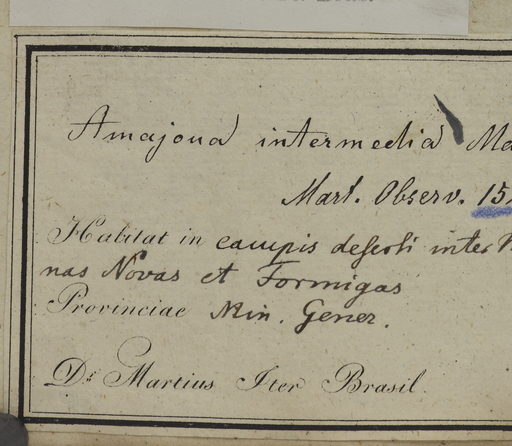 Amajoua intermedia Ma
Mart. Observ. 15
Habitat in campis deserti inter
nas Novas et Formigas
Provinciae Min. Gener.
Dr. Martius Iter Brasil.